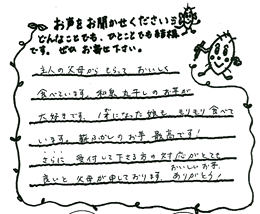 お声をお聞かせください
どんなことでも、ひとことでも結構
です。ぜひ お寄せ下さい。
主人の父母から もらって おいしく
食べています。和泉 丸干しのお芋が
大好きです。1才になった娘も もりもり食べて
います。蔵ふかしのお芋 最高です!
さらに 受付して下さる方の対応がとても
おいしいお芋、
良いと 父母が申しております。ありがとう!